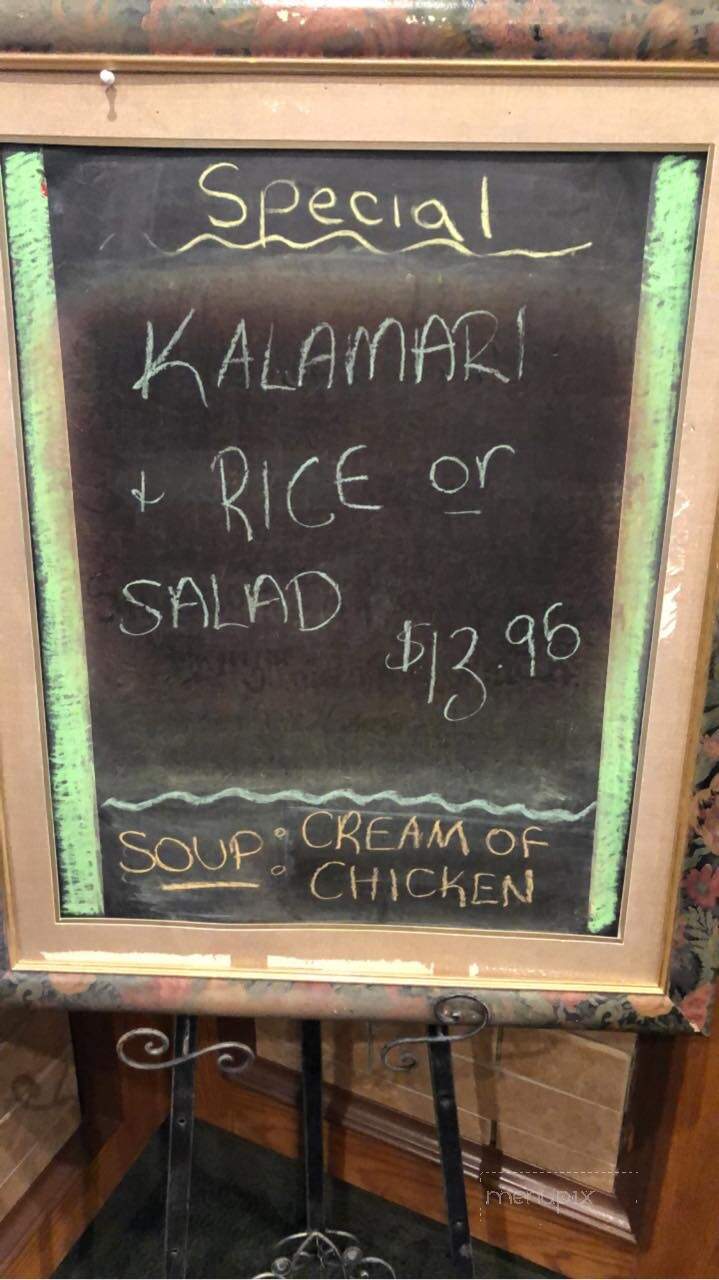 Special
KALAMARI
+ RICE or
SALAD
$13.95
SOUP: CREAM OF
CHICKEN
menupix